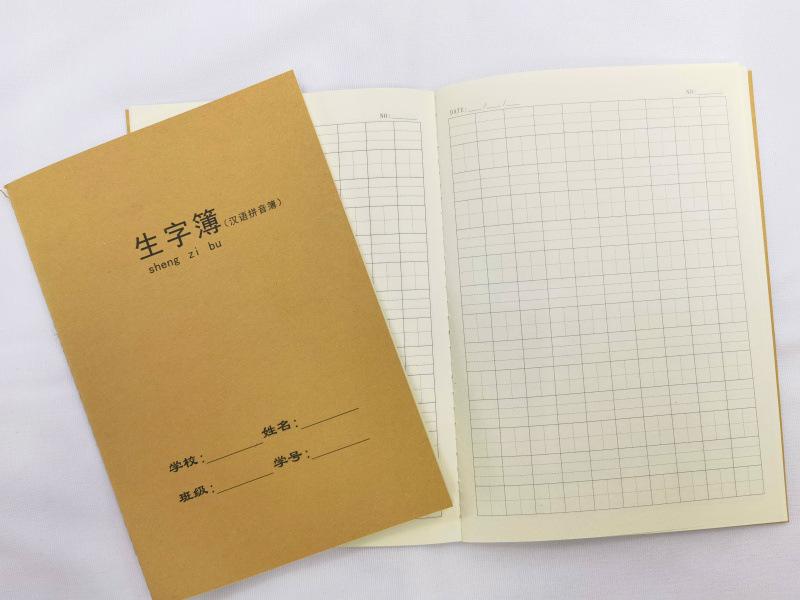 生字簿(汉语拼音簿)
sheng zi bu
学校:________ 姓名:________
班级:________ 学号:________
NO:________
DATE:___/___/___ NO:________